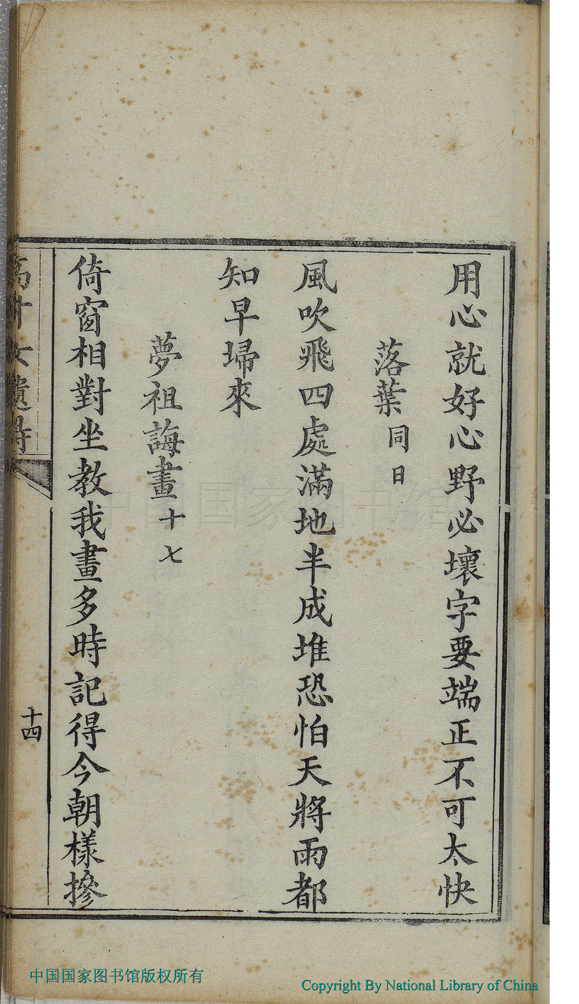 用心就好心野必壞字要端正不可太快
落葉同日
風吹飛四處滿地半成堆恐怕天將雨都
知早埽來
夢祖誨畫十七
倚窗相對坐教我畫多時記得今朝樣摻
高才女遺詩
十四
中国国家图书馆
中国国家图书馆版权所有
Copyright By National Library of China